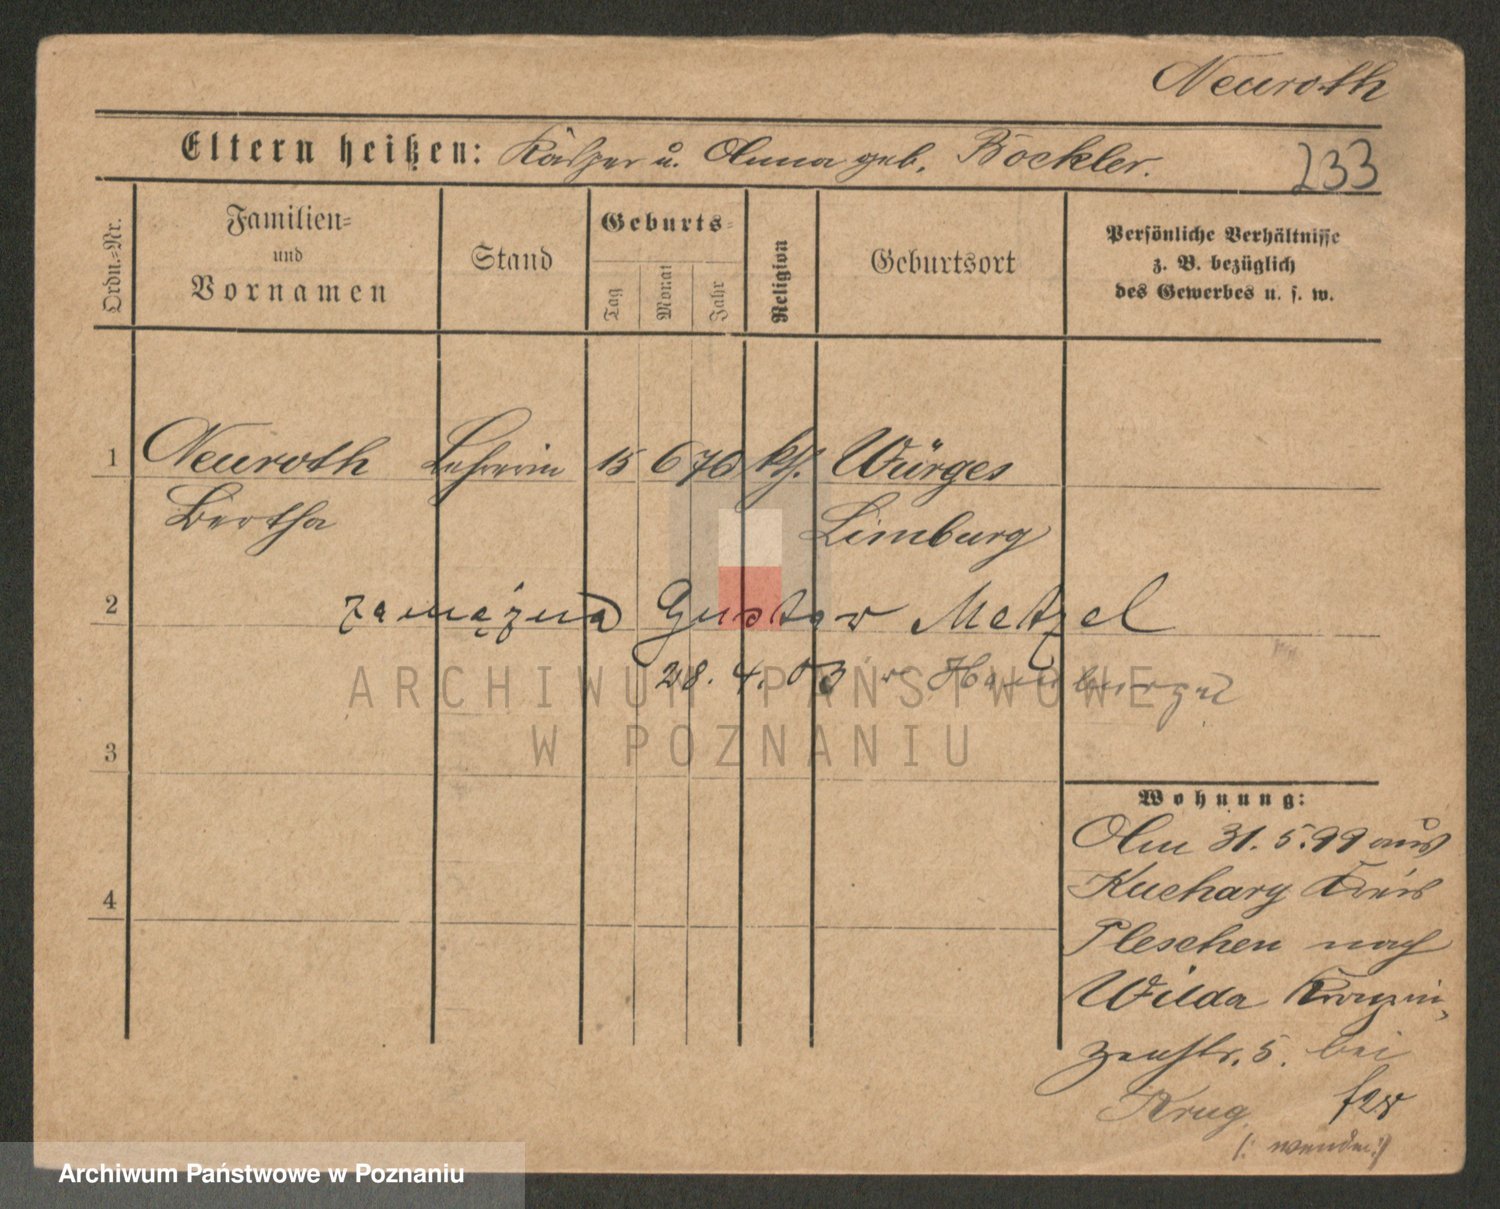 Neuroth
Eltern heißen: Kasper u. Anna geb. Böckler.
233
Ordn.-Nr.
Familien- und Vornamen
Stand
Geburts-
Tag
Monat
Jahr
Religion
Geburtsort
Persönliche Verhältnisse
z. B. bezüglich
des Gewerbes u. s. w.
1 Neuroth Lehrerin 15 6 76 kth. Würges
Bertha Limburg
2 zamężna Gustav Metzel
28. 4. 03 w Hamburgu
ARCHIWUM PAŃSTWOWE
W POZNANIU
3
4
Wohnung:
Am 31. 5. 99 aus
Kuchary Kreis
Pleschen nach
Wilda Kronprin,
zenstr. 5. bei
Krug
(: wenden :)
Archiwum Państwowe w Poznaniu